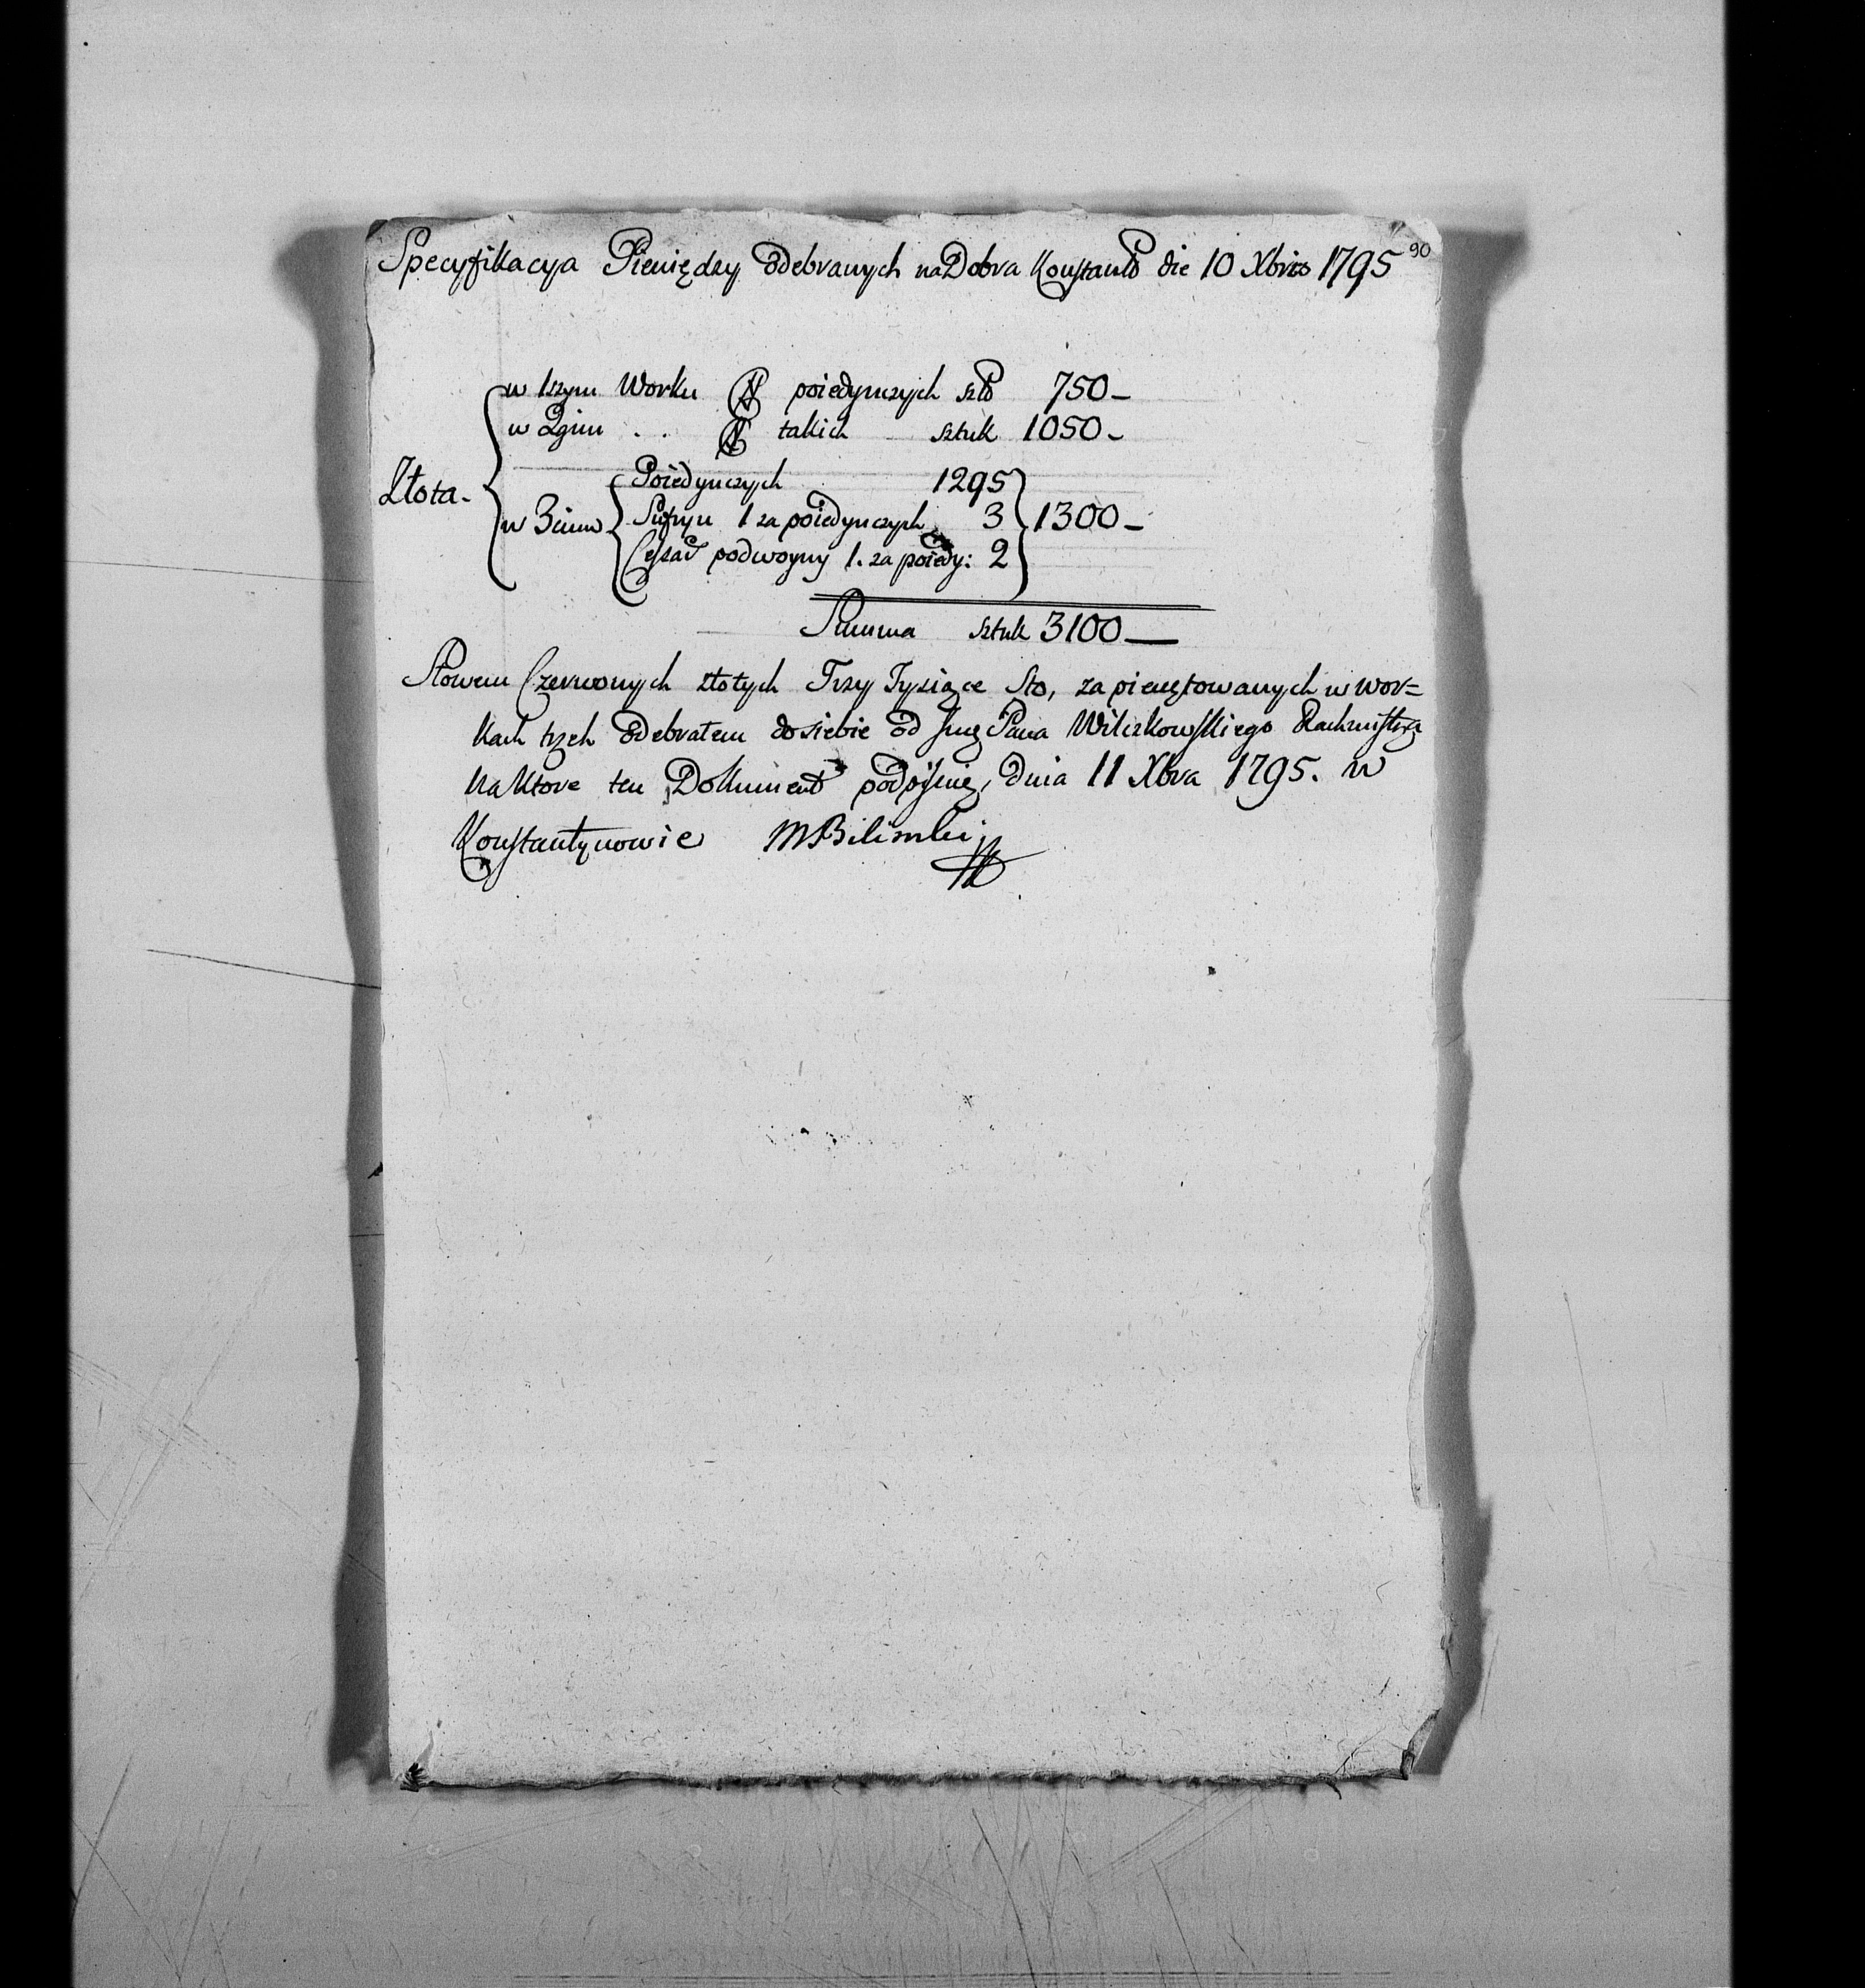 90
Specyfikacya Pieniędzy Odebranych na Dobra Konstant die 10 Xbris 1795
w 1szym Worku # poiedynczych szt 750 –
w 2gim . . # takich sztuk 1050 –
Złota –
Poiedynczych 1295
w 3cim Sufryn 1 za poiedynczych 3 1300 –
Cesar podwoyny 1. za poiedy: 2
Summa sztuk 3100 —
Słowem Czerwonych złotych Trzy Tysiące Sto, zapieczętowanych w wor=
kach trzech odebrałem do siebie od Jmę Pana Wilczkowskiego Rachmistrza
na ktore ten Dokument podpisuię, dnia 11 Xbra 1795. w
Konstantynowie MBilinski